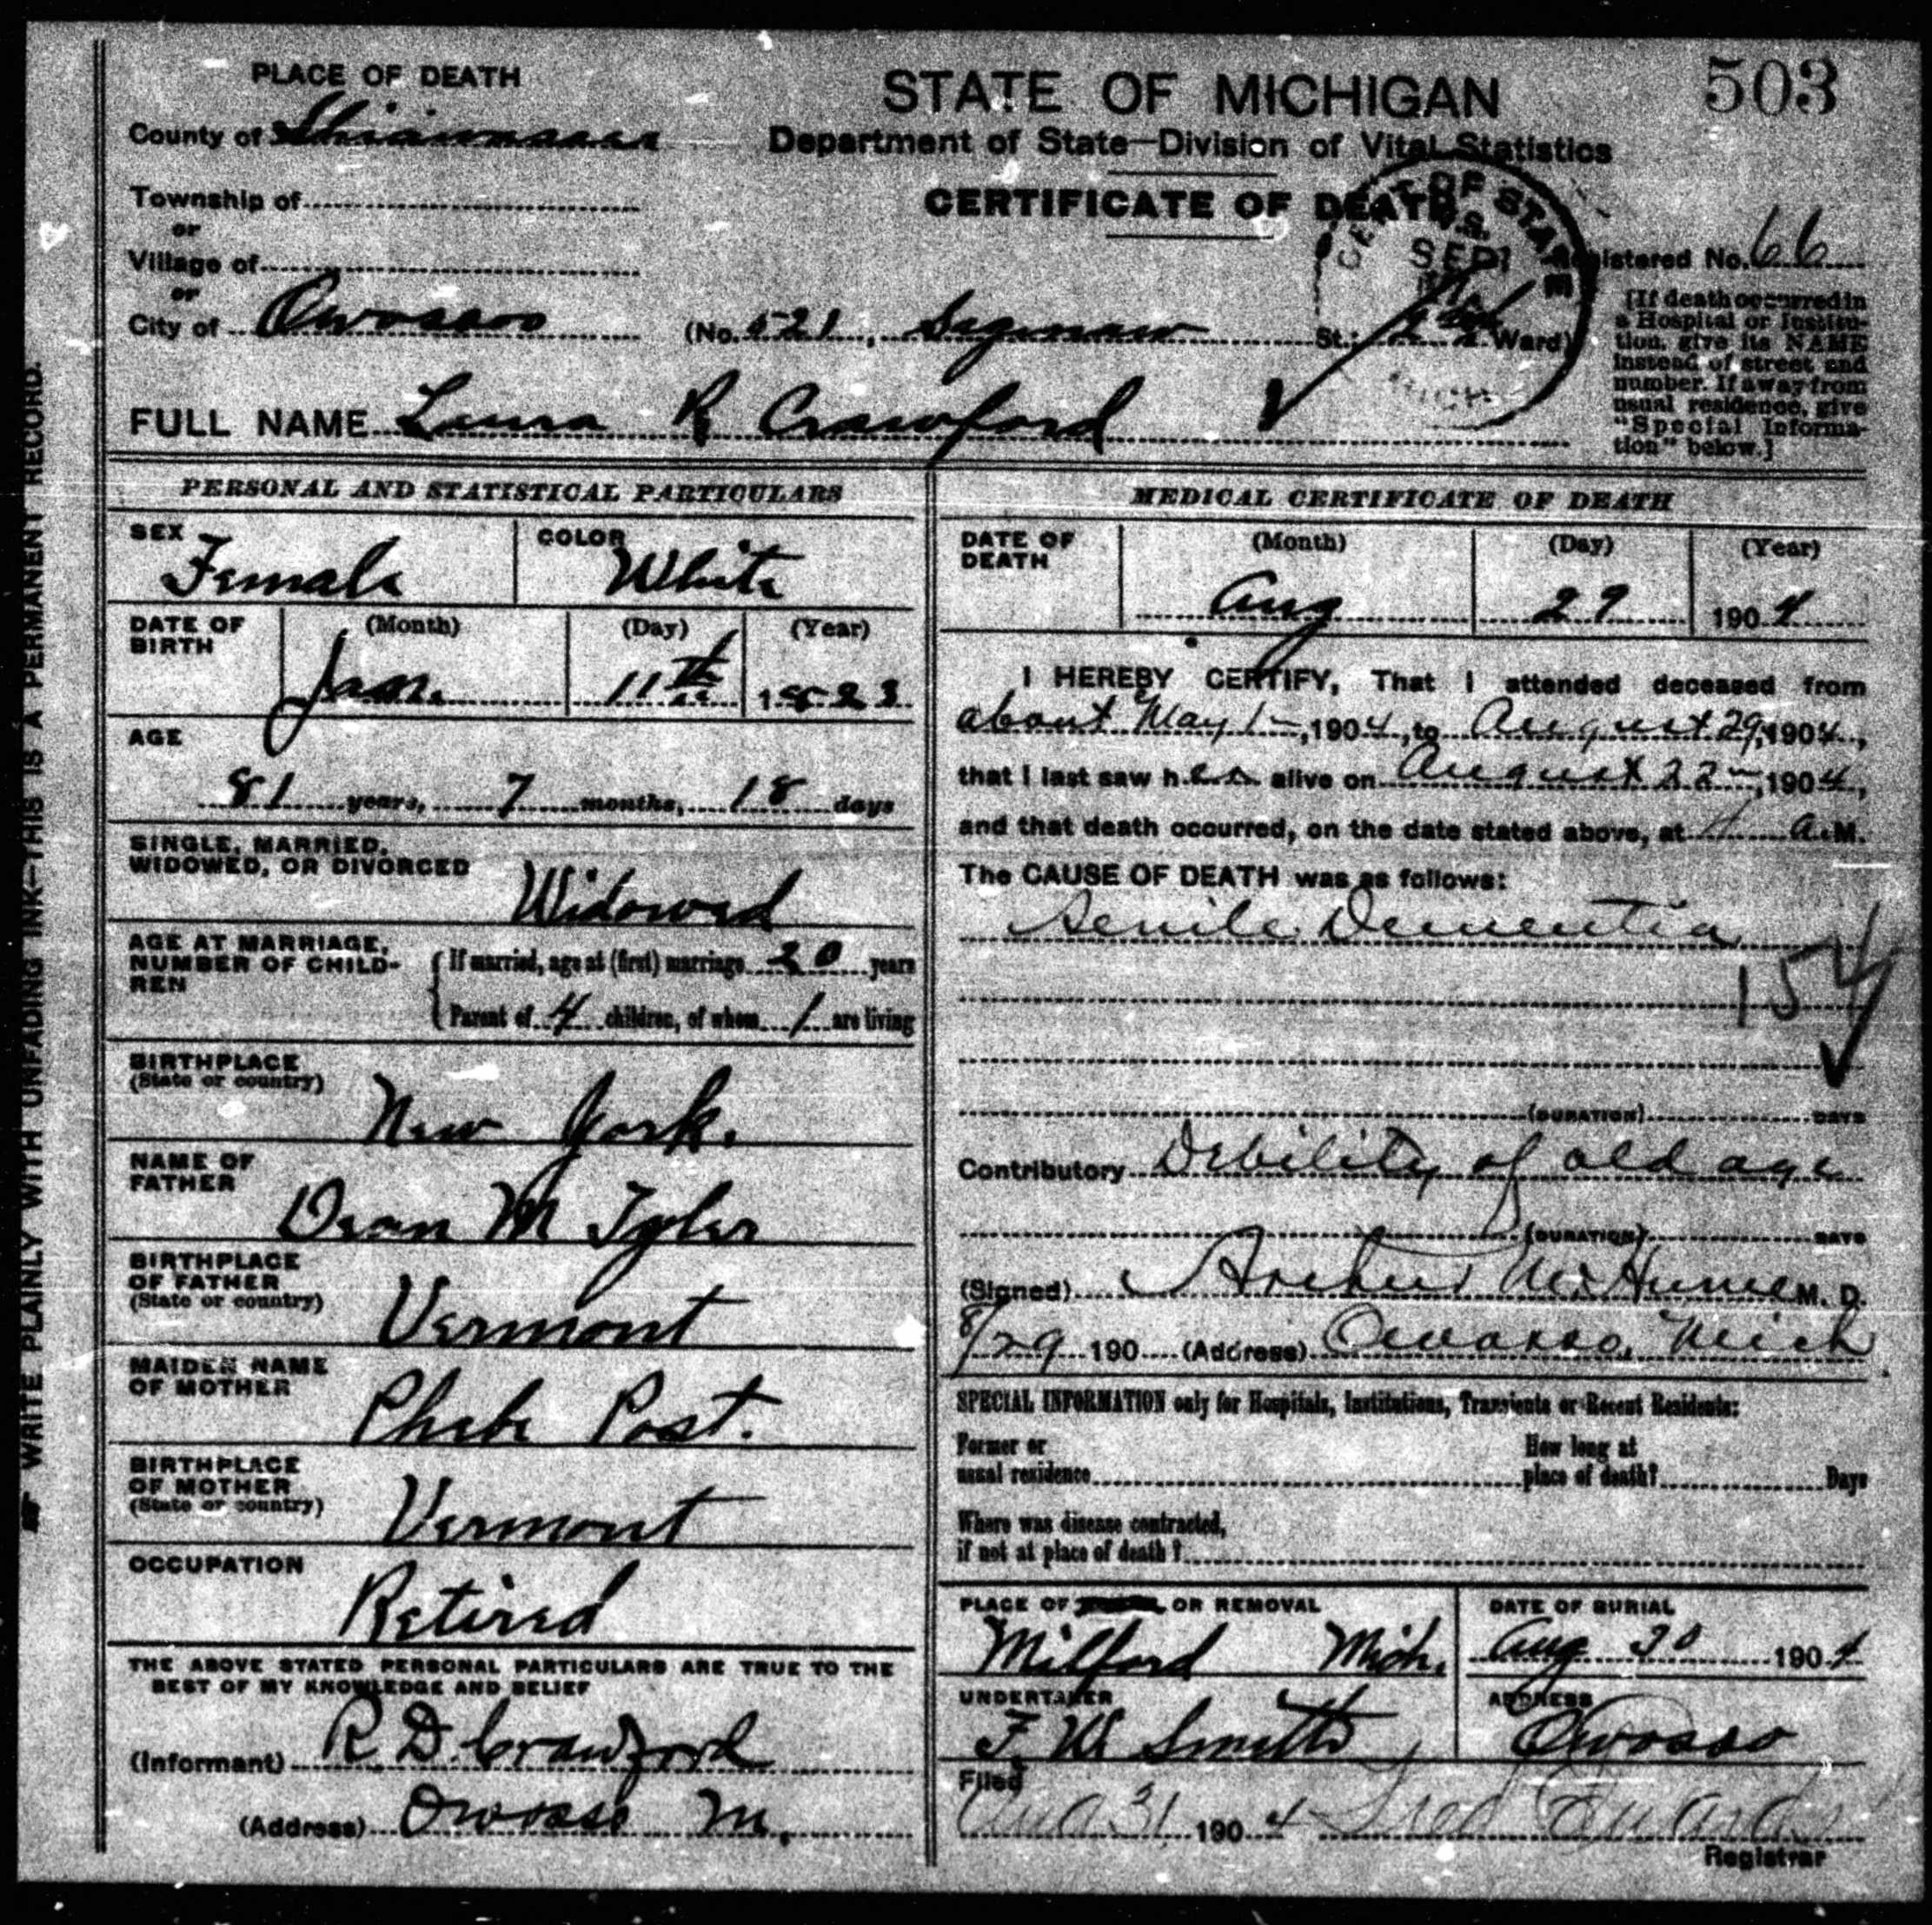 503
PLACE OF DEATH
STATE OF MICHIGAN
County of Shiawassee
Department of State—Division of Vital Statistics
Township of
CERTIFICATE OF DEATH
or
Village of
Registered No. 66
or
City of Owosso (No. 521, Saginaw St.; Ward)
[If death occurred in
a Hospital or Institu-
tion, give its NAME
instead of street and
number. If away from
usual residence, give
"Special Informa-
tion" below.]
SEP
FULL NAME Laura R Crawford
PERSONAL AND STATISTICAL PARTICULARS
SEX Female
COLOR White
DATE OF BIRTH
(Month) (Day) (Year)
Jan. 11th 1823
AGE
81 years, 7 months, 18 days
SINGLE, MARRIED,
WIDOWED, OR DIVORCED
Widowed
AGE AT MARRIAGE,
NUMBER OF CHILD-
REN
If married, age at (first) marriage 20 years
Parent of 4 children, of whom 1 are living
BIRTHPLACE
(State or country)
New York.
NAME OF
FATHER
Dean M Tyler
BIRTHPLACE
OF FATHER
(State or country)
Vermont
MAIDEN NAME
OF MOTHER
Phebe Post.
BIRTHPLACE
OF MOTHER
(State or country)
Vermont
OCCUPATION
Retired
THE ABOVE STATED PERSONAL PARTICULARS ARE TRUE TO THE
BEST OF MY KNOWLEDGE AND BELIEF
(Informant) R. D. Crawford
(Address) Owosso M.
MEDICAL CERTIFICATE OF DEATH
DATE OF
DEATH
(Month) (Day) (Year)
Aug 29 1904
I HEREBY CERTIFY, That I attended deceased from
about May 1 , 1904, to August 29, 1904,
that I last saw her alive on August 22 , 1904,
and that death occurred, on the date stated above, at 1 a.M.
The CAUSE OF DEATH was as follows:
Senile Dementia
154
(DURATION) DAYS
Contributory Debility of old age
(DURATION) DAYS
(Signed) Arthur M. Hume M. D.
8/29 190 (Address) Owosso, Mich
SPECIAL INFORMATION only for Hospitals, Institutions, Transients or Recent Residents:
Former or
usual residence
How long at
place of death? Days
Where was disease contracted,
if not at place of death?
PLACE OF OR REMOVAL
Milford Mich.
DATE OF BURIAL
Aug 30 1904
UNDERTAKER
F. W. Smith
ADDRESS
Owosso
Filed
Aug 31 1904 Fred Edwards
Registrar
WRITE PLAINLY WITH UNFADING INK—THIS IS A PERMANENT RECORD.